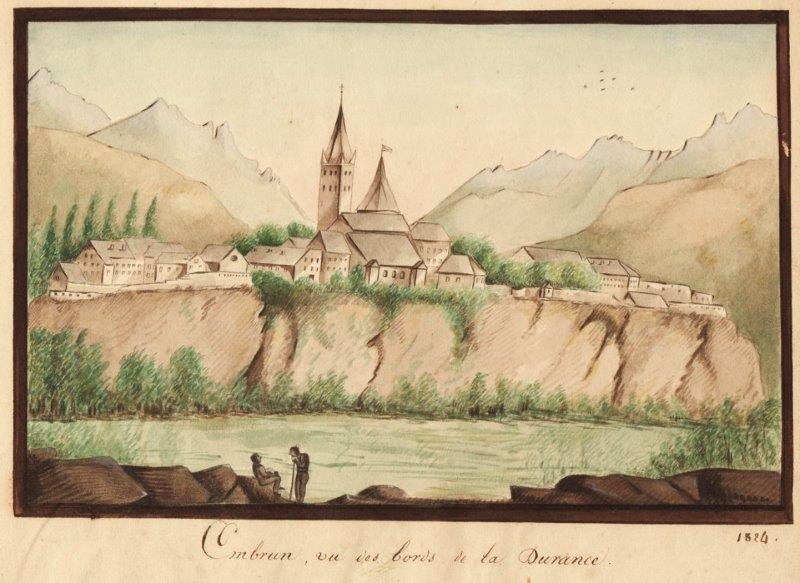 1824.
Embrun, vu des bords de la Durance.